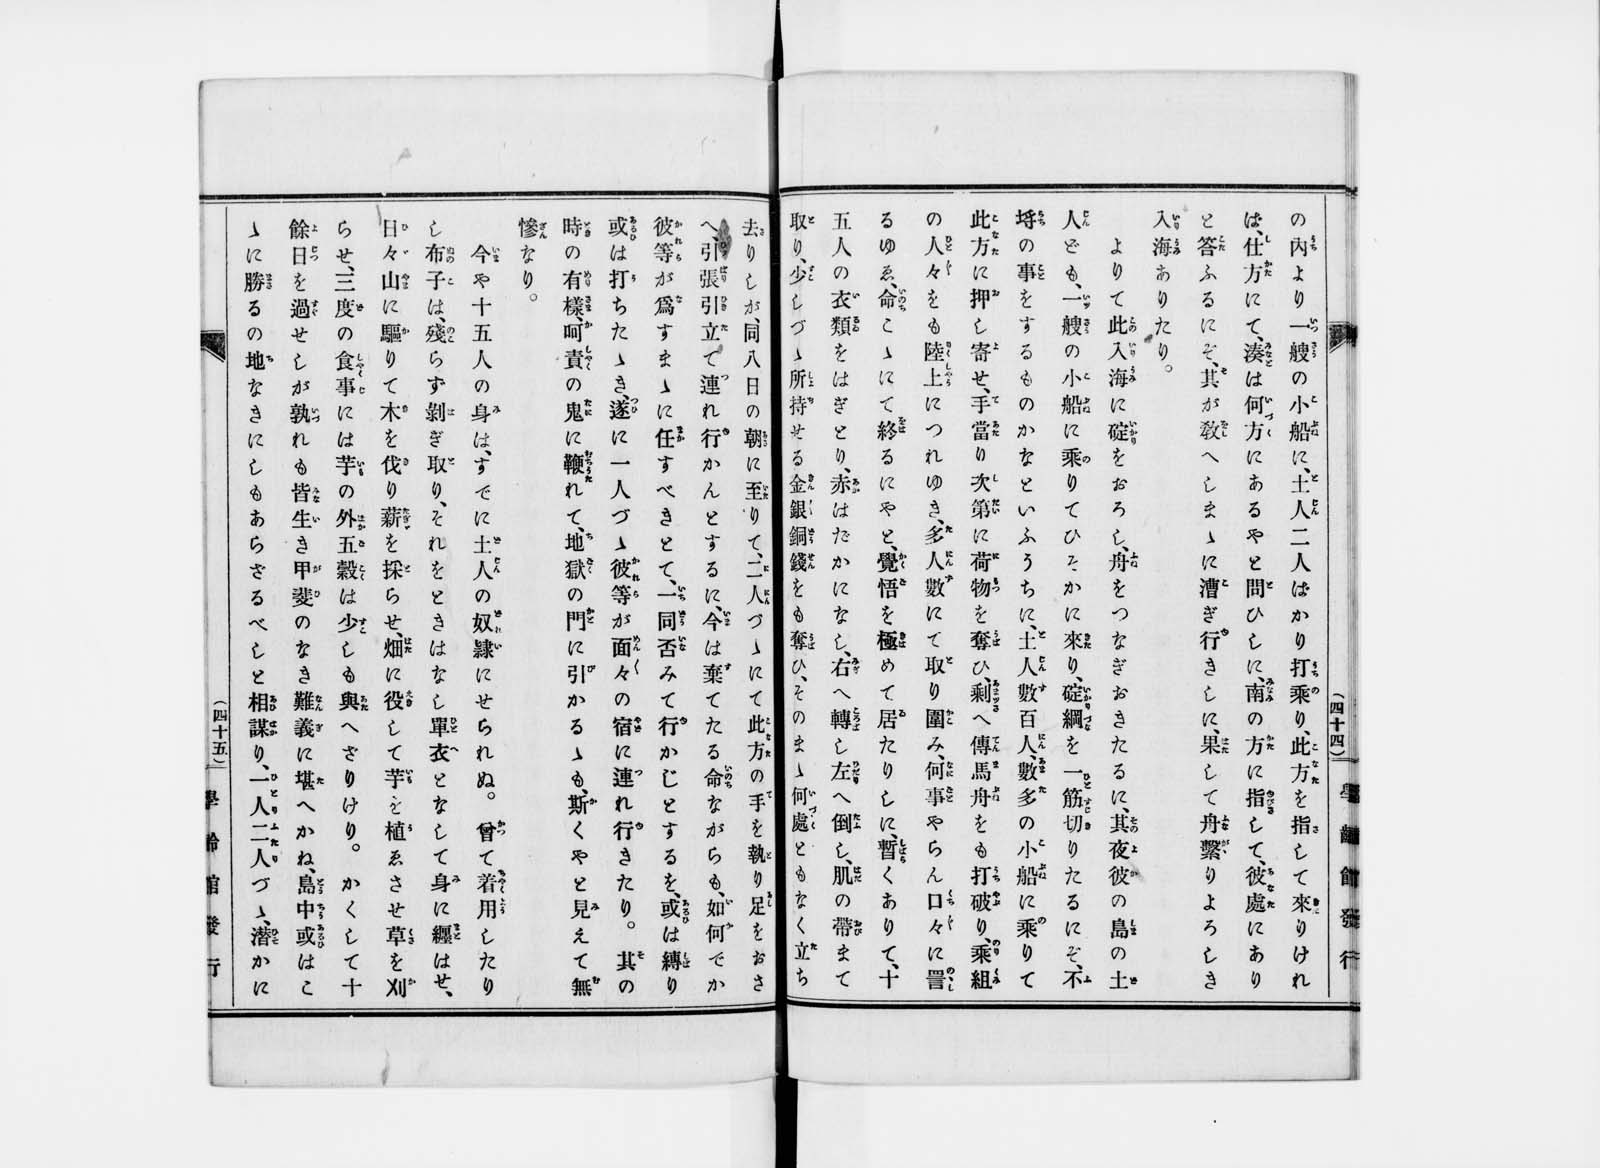 の內より一艘の小船に、土人二人ばかり打乘り、此方を指して來りけれ
ば、仕方にて、湊は何方にあるやと問ひしに、南の方に指して、彼處にあり
と答ふるにぞ、其が敎へしまゝに漕ぎ行きしに、果して舟繫りよろしき
入海ありたり。
よりて此入海に碇をおろし、舟をつなぎおきたるに、其夜彼の島の土
人ども、一艘の小船に乘りてひそかに來り、碇綱を一筋切りたるにぞ、不
埓の事をするものかなといふうちに、土人數百人、數多の小船に乘りて
此方に押し寄せ、手當り次第に荷物を奪ひ、剩へ傳馬舟をも打破り、乘組
の人々をも陸上につれゆき、多人數にて取り圍み、何事やらん口々に詈
るゆゑ、命こゝにて終るにやと、覺悟を極めて居たりしに、暫くありて、十
五人の衣類をはぎとり、赤はだかになし、右へ轉し左へ倒し、肌の帶まで
取り、少しづゝ所持せる金銀銅錢をも奪ひ、そのまゝ何處ともなく立ち
(四十四)
學齡館發行
去りしが、同八日の朝に至りて、二人づゝにて此方の手を執り足をおさ
へ、引張引立て連れ行かんとするに、今は棄てたる命ながらも、如何でか
彼等が爲すまゝに任すべきとて、一同否みて行かじとするを、或は縛り
或は打ちたゝき、遂に一人づゝ彼等が面々の宿に連れ行きたり。其の
時の有樣、呵責の鬼に鞭れて、地獄の門に引かるゝも、斯くやと見えて無
慘なり。
今や十五人の身は、すでに土人の奴隷にせられぬ。曾て着用したり
し布子は、殘らず剝ぎ取り、それをときはなし單衣となして身に纒はせ、
日々山に驅りて木を伐り薪を採らせ、畑に役して芋を植ゑさせ草を刈
らせ、三度の食事には芋の外五穀は少しも與へざりけり。かくして十
餘日を過せしが孰れも皆生き甲斐のなき難義に堪へかね、島中或はこ
ゝに勝るの地なきにしもあらざるべしと相謀り、一人二人づゝ、潜かに
(四十五)
學齡館發行